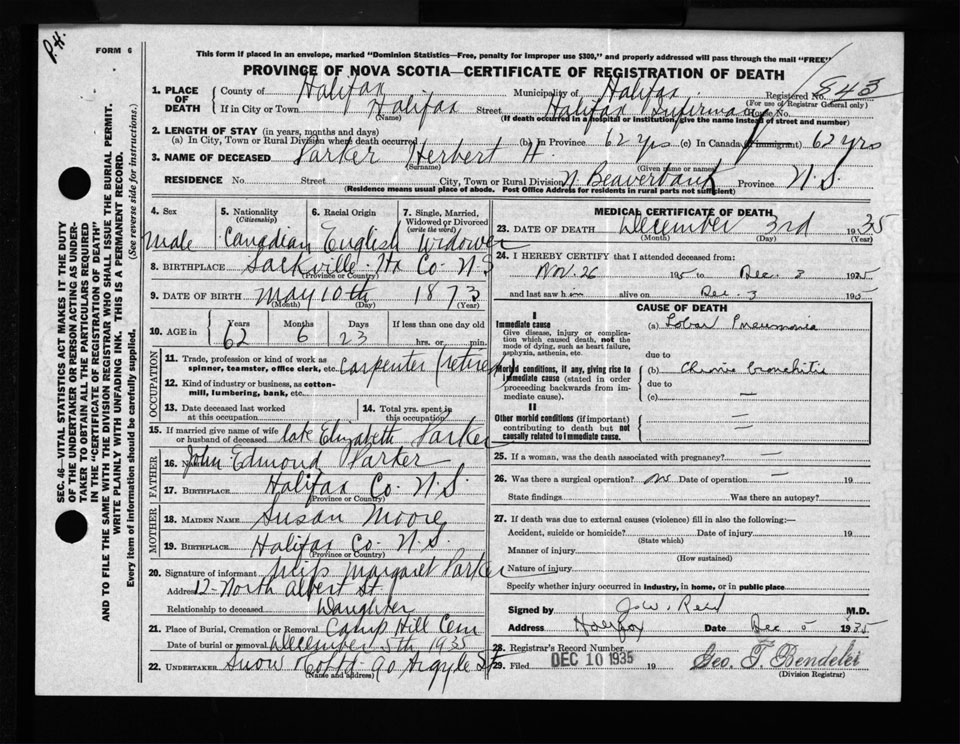 P.H.
FORM 6
This form if placed in an envelope, marked "Dominion Statistics—Free, penalty for improper use $300," and properly addressed will pass through the mail "FREE"
PROVINCE OF NOVA SCOTIA—CERTIFICATE OF REGISTRATION OF DEATH
1. PLACE OF DEATH
County of Halifax Municipality of Halifax Registered No. 843
(For use of Registrar General only)
If in City or Town Halifax Street Halifax Infirmary House No.
(Name) (If death occurred in a hospital or institution, give the name instead of street and number)
2. LENGTH OF STAY (in years, months and days)
(a) In City, Town or Rural Division where death occurred (b) In Province 62 yrs (c) In Canada (if immigrant) 62 yrs
3. NAME OF DECEASED Parker Herbert H.
(Surname) (Given name or names)
RESIDENCE No. Street City, Town or Rural Division N. Beaverbank Province N.S.
(Residence means usual place of abode. Post Office Address for residents in rural parts not sufficient)
4. Sex
Male
5. Nationality
(Citizenship)
Canadian
6. Racial Origin
English
7. Single, Married, Widowed or Divorced
(write the word)
Widower
8. BIRTHPLACE Sackville Hx Co N.S
(Province or Country)
9. DATE OF BIRTH May 10th 1873
(Month) (Day) (Year)
10. AGE in Years Months Days If less than one day old
62 6 23 hrs. or min.
OCCUPATION
11. Trade, profession or kind of work as spinner, teamster, office clerk, etc. Carpenter (retired)
12. Kind of industry or business, as cotton-mill, lumbering, bank, etc.
13. Date deceased last worked at this occupation
14. Total yrs. spent in this occupation
15. If married give name of wife or husband of deceased late Elizabeth Parker
FATHER
16. Name John Edmond Parker
17. Birthplace Halifax Co. N.S.
(Province or Country)
MOTHER
18. Maiden Name Susan Moore
19. Birthplace Halifax Co. N.S.
(Province or Country)
20. Signature of informant Miss Margaret Parker
Address 12 North Albert St
Relationship to deceased Daughter
21. Place of Burial, Cremation or Removal Camp Hill Cem
Date of burial or removal December 5th 1935
22. UNDERTAKER Snow & Co Ltd 90 Argyle St
(Name and address)
MEDICAL CERTIFICATE OF DEATH
23. DATE OF DEATH December 3rd 1935
(Month) (Day) (Year)
24. I HEREBY CERTIFY that I attended deceased from:
Nov. 26 1935 to Dec. 3 1935
and last saw him alive on Dec. 3 1935
CAUSE OF DEATH
I
Immediate cause
Give disease, injury or complication which caused death, not the mode of dying, such as heart failure, asphyxia, asthenia, etc.
(a) Lobar Pneumonia
due to
Morbid conditions, if any, giving rise to immediate cause (stated in order proceeding backwards from immediate cause).
(b) Chronic bronchitis
due to
(c) —
II
Other morbid conditions (if important) contributing to death but not causally related to immediate cause.
—
—
25. If a woman, was the death associated with pregnancy? —
26. Was there a surgical operation? no Date of operation — 19
State findings Was there an autopsy?
27. If death was due to external causes (violence) fill in also the following:—
Accident, suicide or homicide? Date of injury 19
(State which)
Manner of injury
(How sustained)
Nature of injury
Specify whether injury occurred in industry, in home, or in public place
Signed by J.W. Reid M.D.
Address Halifax Date Dec 5 1935
28. Registrar's Record Number
29. Filed DEC 10 1935 19 Geo. F. Bendelei
(Division Registrar)
SEC. 46—VITAL STATISTICS ACT MAKES IT THE DUTY
OF THE UNDERTAKER OR PERSON ACTING AS UNDER-
TAKER TO OBTAIN ALL THE PARTICULARS REQUIRED
IN THE "CERTIFICATE OF REGISTRATION OF DEATH"
AND TO FILE THE SAME WITH THE DIVISION REGISTRAR WHO SHALL ISSUE THE BURIAL PERMIT.
WRITE PLAINLY WITH UNFADING INK. THIS IS A PERMANENT RECORD.
Every item of information should be carefully supplied. (See reverse side for instructions.)